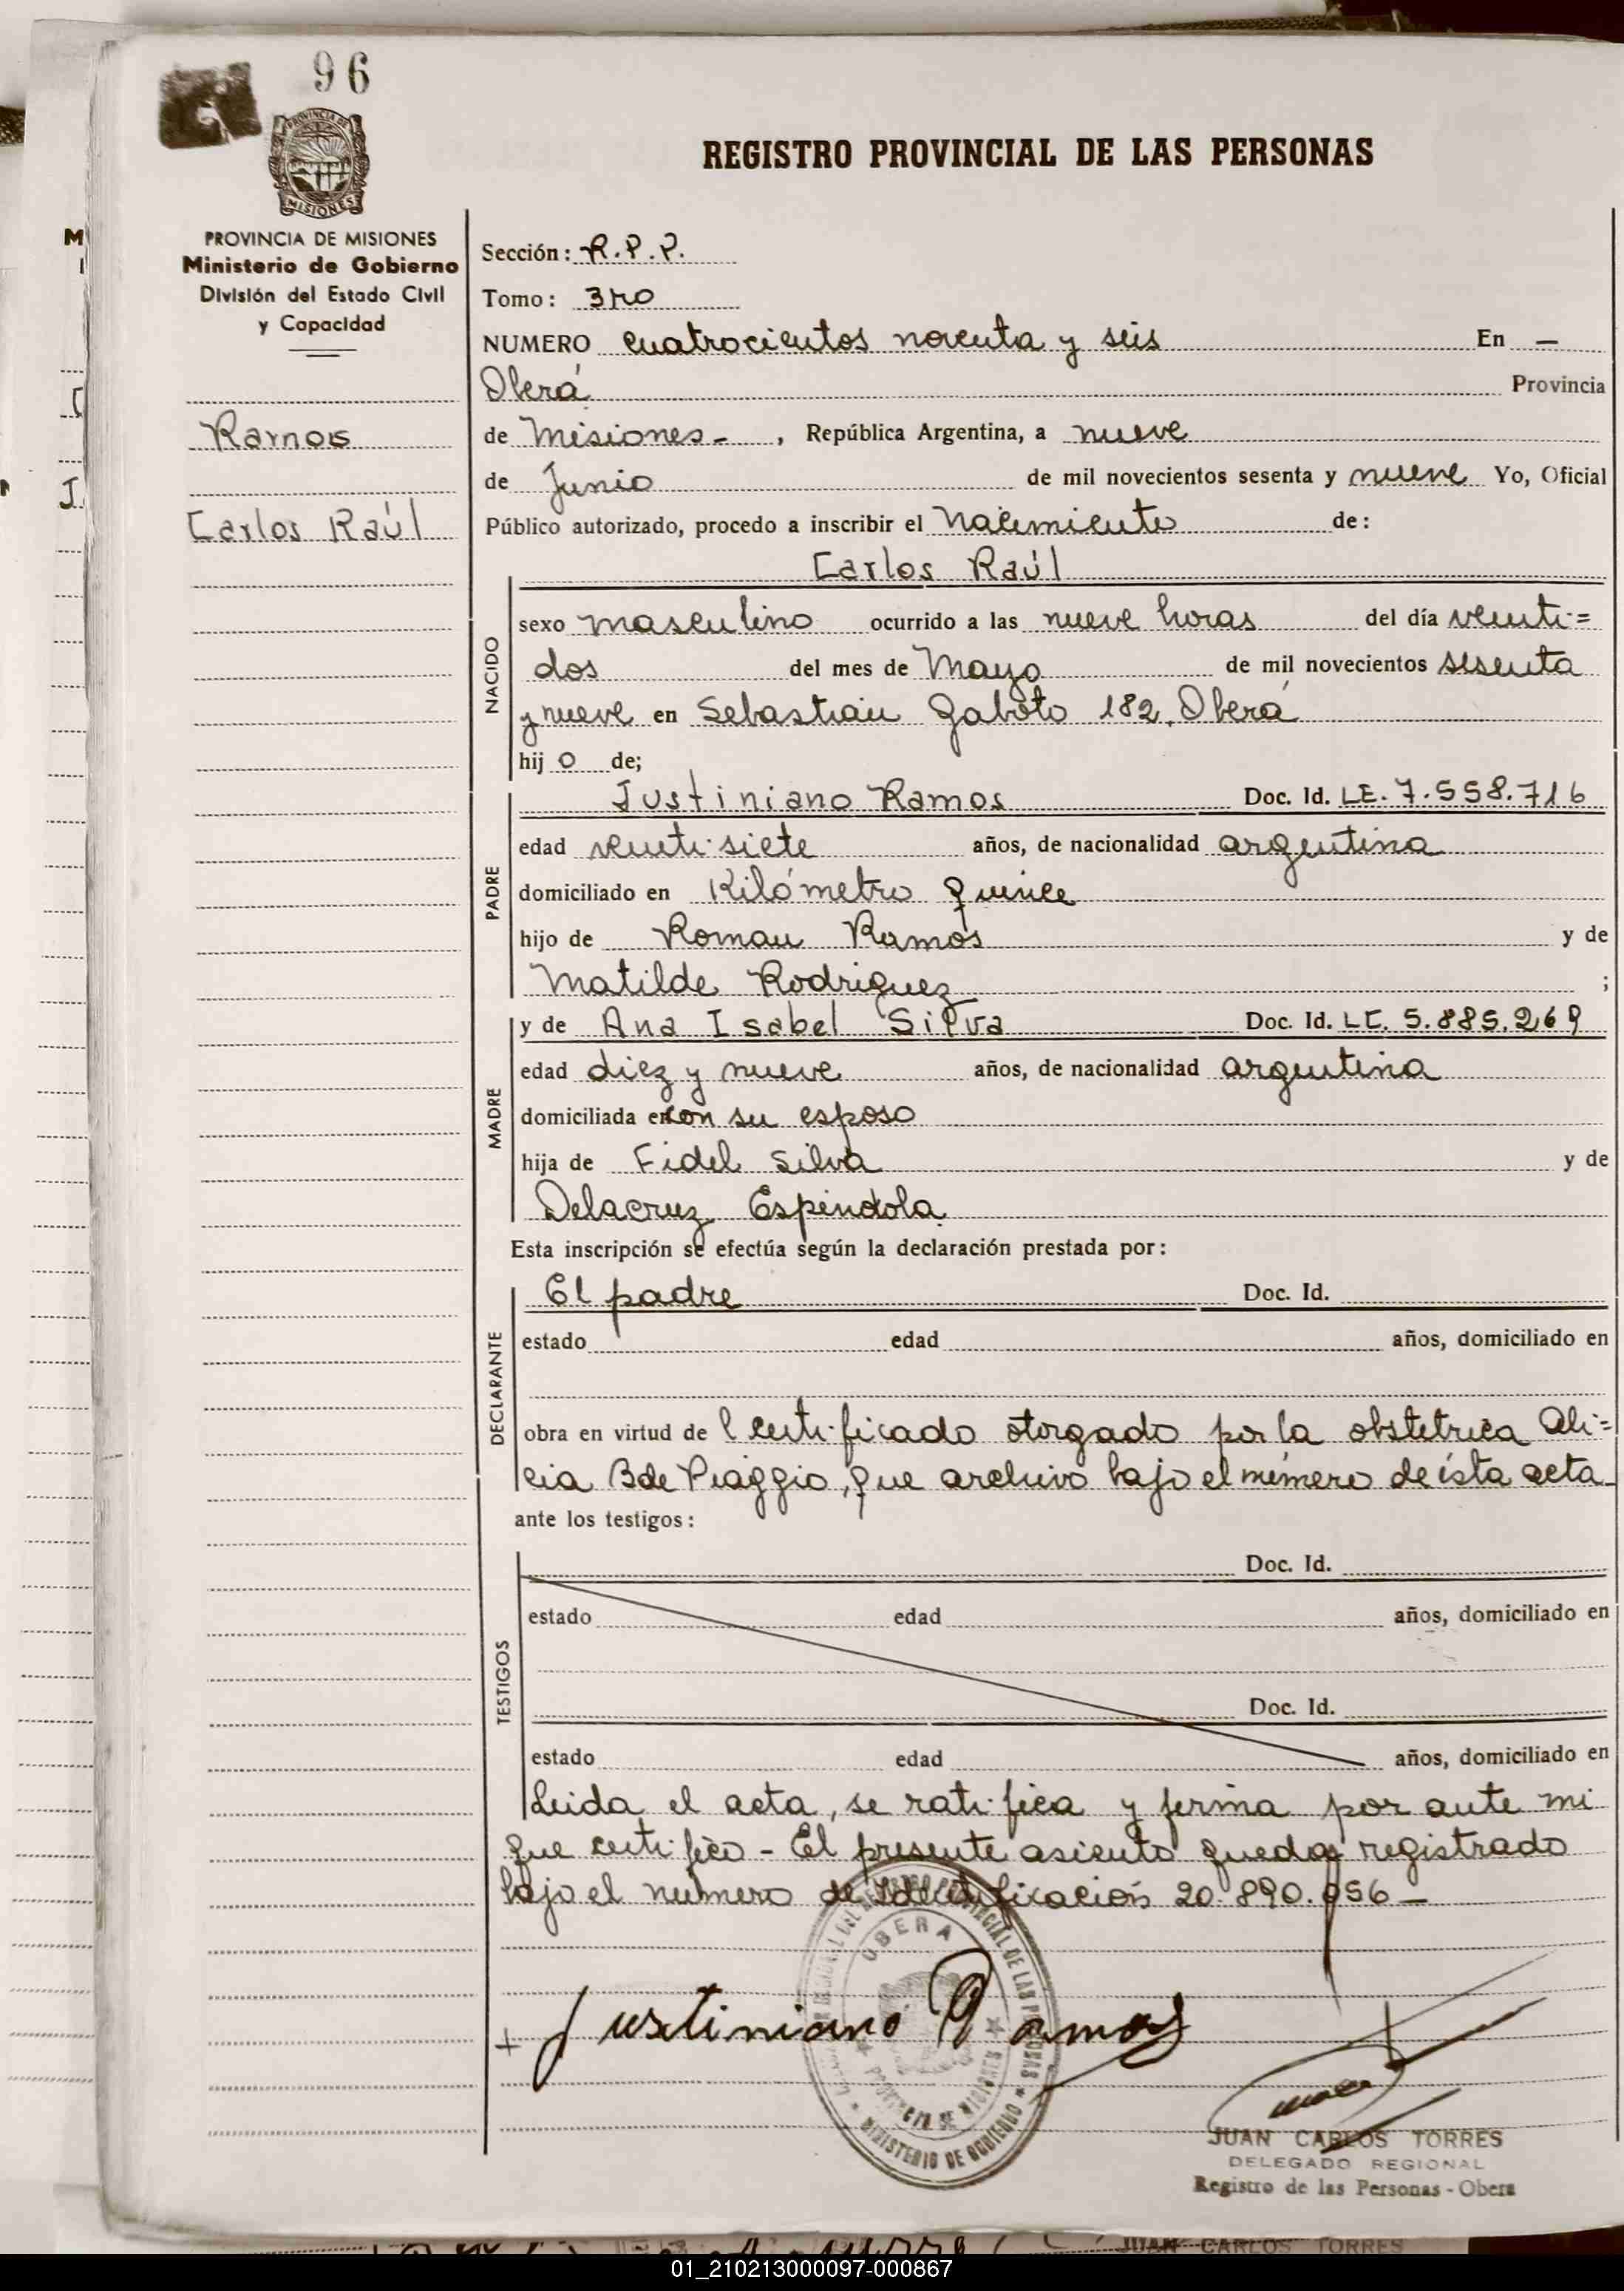 96
PROVINCIA DE
MISIONES
REGISTRO PROVINCIAL DE LAS PERSONAS
PROVINCIA DE MISIONES
Ministerio de Gobierno
División del Estado Civil
y Capacidad
Ramos
Carlos Raúl
Sección: R.P.P.
Tomo: 3ro
NUMERO cuatrocientos noventa y seis En —
Oberá Provincia
de Misiones-, República Argentina, a nueve
de Junio de mil novecientos sesenta y nueve Yo, Oficial
Público autorizado, procedo a inscribir el Nacimiento de:
Carlos Raúl
NACIDO
sexo masculino ocurrido a las nueve horas del día veinti=
dos del mes de Mayo de mil novecientos sesenta
y nueve en Sebastian Gaboto 182, Oberá
hij o de;
PADRE
Justiniano Ramos Doc. Id. LE. 7.558.716
edad veintisiete años, de nacionalidad argentina
domiciliado en Kilómetro quince
hijo de Roman Ramos y de
Matilde Rodriguez ;
MADRE
y de Ana Isabel Silva Doc. Id. LC. 5.885.269
edad diez y nueve años, de nacionalidad argentina
domiciliada en con su esposo
hija de Fidel Silva y de
Delacruz Espindola
Esta inscripción se efectúa según la declaración prestada por:
DECLARANTE
El padre Doc. Id.
estado edad años, domiciliado en
obra en virtud de Certificado otorgado por la obstetrica Ali=
cia B de Piaggio, que archivo bajo el número de ésta acta
ante los testigos:
TESTIGOS
Doc. Id.
estado edad años, domiciliado en
Doc. Id.
estado edad años, domiciliado en
Leida el acta, se ratifica y firma por ante mi
que certifico - El presente asiento queda registrado
bajo el número de Identificación 20.890.956 —
OBERA
PROVINCIA DE MISIONES
MINISTERIO DE GOBIERNO
Justiniano Ramos
JUAN CARLOS TORRES
DELEGADO REGIONAL
Registro de las Personas - Obera
JUAN CARLOS TORRES
01_210213000097-000867